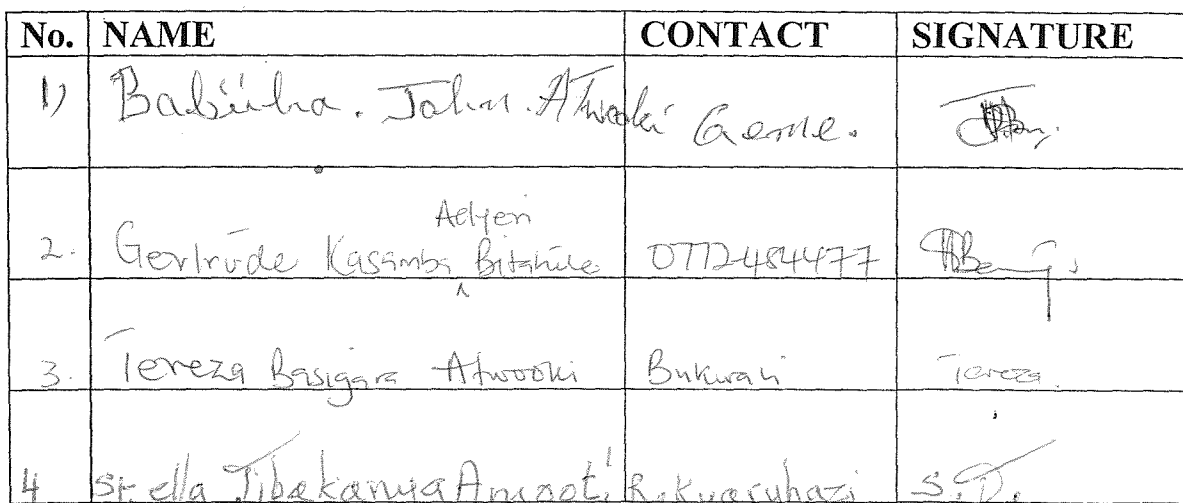 No. NAME CONTACT SIGNATURE
1) Babiiha. John. Atwooki Geme.
Adyeri
2. Gertrude Kasamba ^ Bitahule 0772484477
3. Tereza Basigara Atwooki Bukwali Tereza.
4 Stella Tibakanya Amooti S.T.